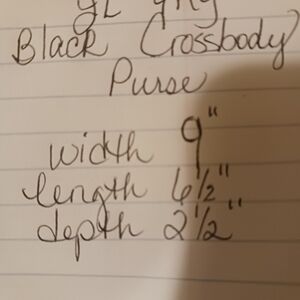 Black Crossbody
Purse
width 9"
length 6 1/2"
depth 2 1/2"